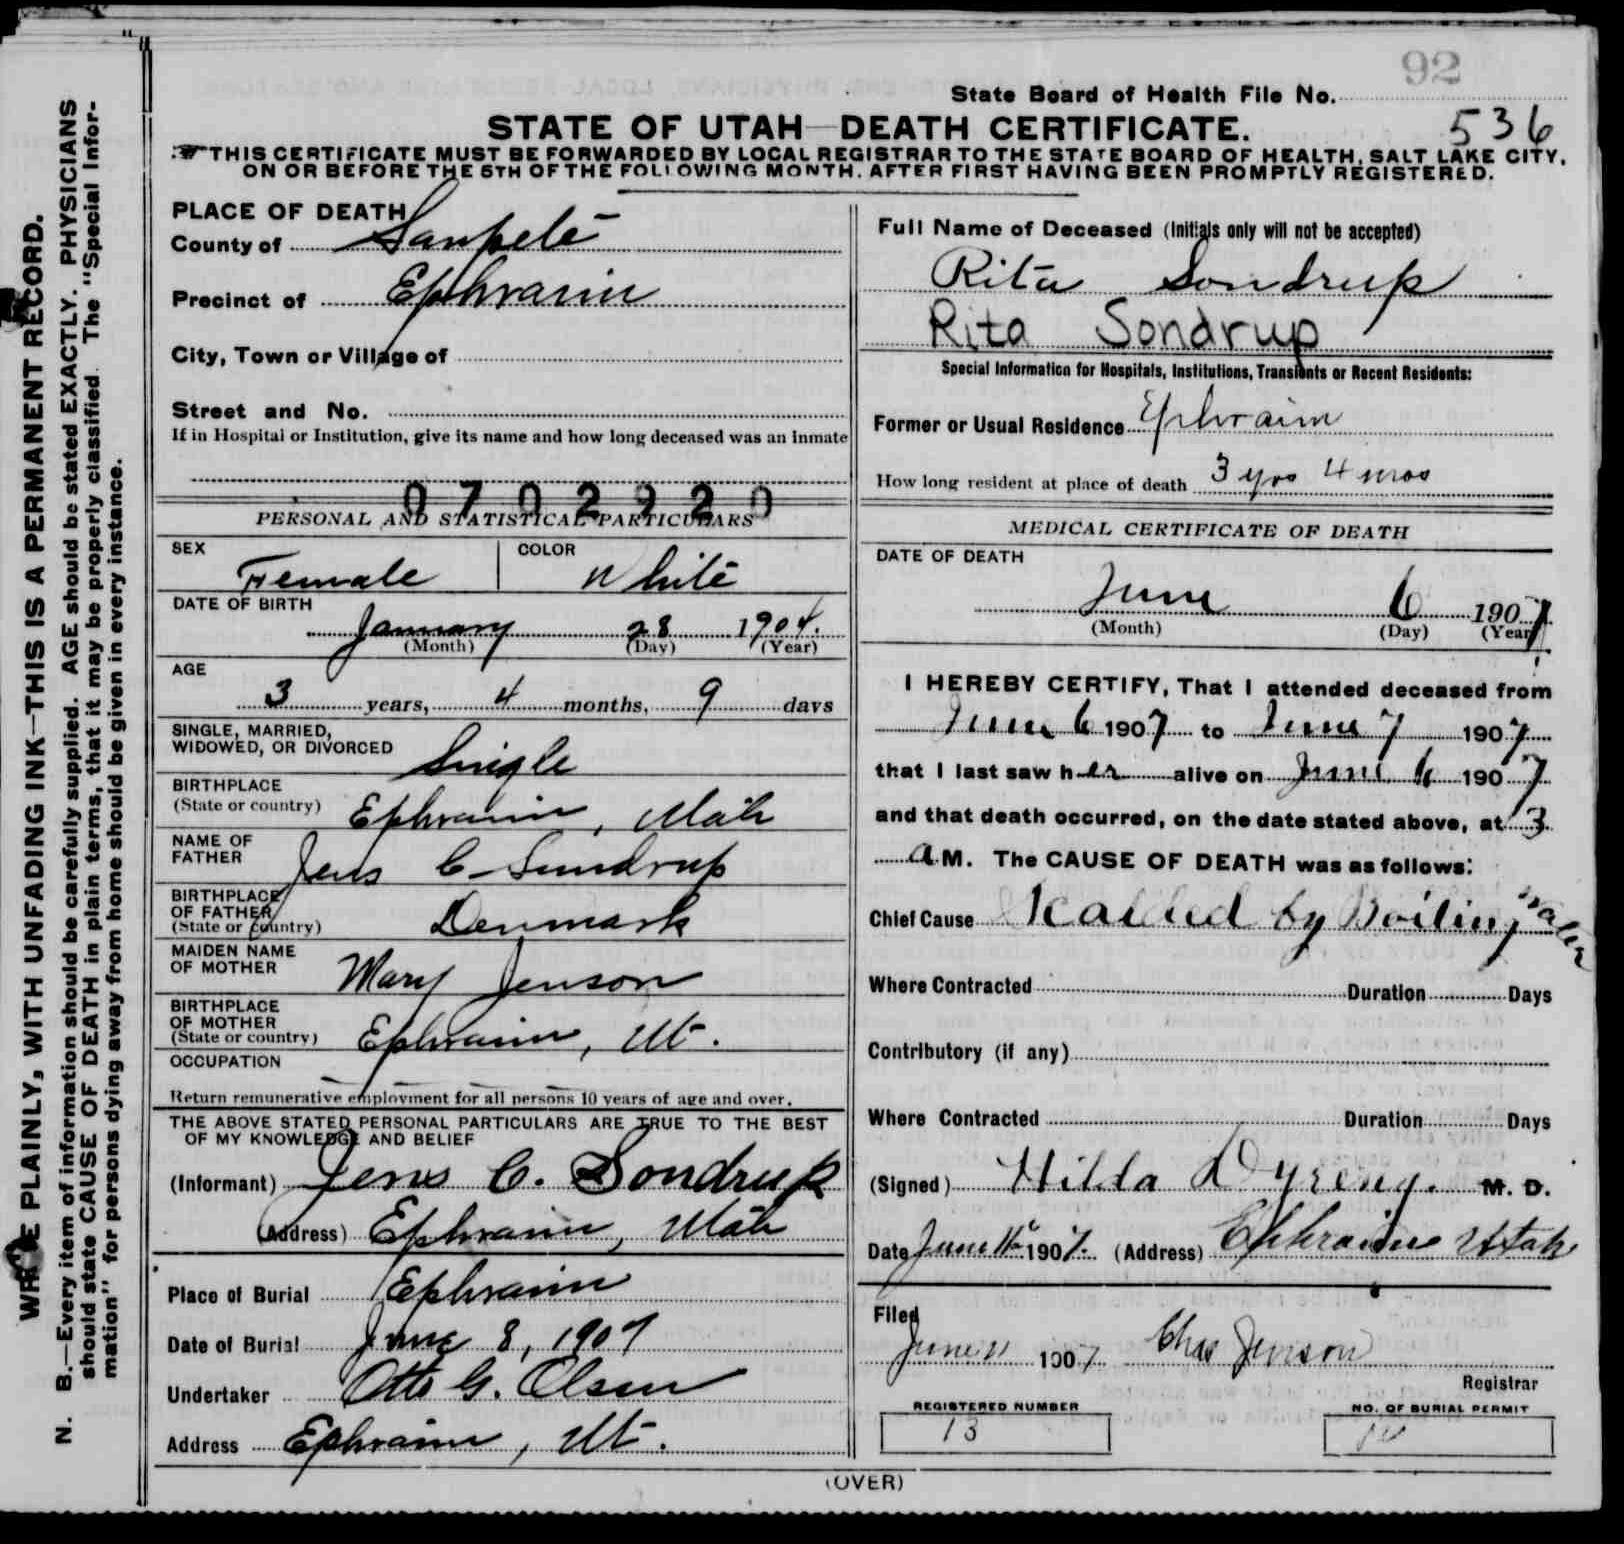 92
State Board of Health File No.
536
STATE OF UTAH—DEATH CERTIFICATE.
THIS CERTIFICATE MUST BE FORWARDED BY LOCAL REGISTRAR TO THE STATE BOARD OF HEALTH, SALT LAKE CITY,
ON OR BEFORE THE 5TH OF THE FOLLOWING MONTH. AFTER FIRST HAVING BEEN PROMPTLY REGISTERED.
WRITE PLAINLY, WITH UNFADING INK—THIS IS A PERMANENT RECORD.
N. B.—Every item of information should be carefully supplied. AGE should be stated EXACTLY. PHYSICIANS
should state CAUSE OF DEATH in plain terms, that it may be properly classified. The "Special Infor-
mation" for persons dying away from home should be given in every instance.
PLACE OF DEATH
County of Sanpete
Precinct of Ephraim
City, Town or Village of
Street and No.
If in Hospital or Institution, give its name and how long deceased was an inmate
0702920
PERSONAL AND STATISTICAL PARTICULARS
SEX Female COLOR White
DATE OF BIRTH
January 28 1904.
(Month) (Day) (Year)
AGE
3 years, 4 months, 9 days
SINGLE, MARRIED,
WIDOWED, OR DIVORCED Single
BIRTHPLACE
(State or country) Ephraim, Utah
NAME OF
FATHER Jens C. Sundrup
BIRTHPLACE
OF FATHER
(State or country) Denmark
MAIDEN NAME
OF MOTHER Mary Jenson
BIRTHPLACE
OF MOTHER
(State or country) Ephraim, Ut.
OCCUPATION
Return remunerative employment for all persons 10 years of age and over.
THE ABOVE STATED PERSONAL PARTICULARS ARE TRUE TO THE BEST
OF MY KNOWLEDGE AND BELIEF
(Informant) Jens C. Sondrup
(Address) Ephraim, Utah
Place of Burial Ephraim
Date of Burial June 8, 1907
Undertaker Otto G. Olsen
Address Ephraim, Ut.
Full Name of Deceased (Initials only will not be accepted)
Rita Sondrup
Rita Sondrup
Special Information for Hospitals, Institutions, Transients or Recent Residents:
Former or Usual Residence Ephraim
How long resident at place of death 3 yrs 4 mos
MEDICAL CERTIFICATE OF DEATH
DATE OF DEATH
June 6 1907
(Month) (Day) (Year)
I HEREBY CERTIFY, That I attended deceased from
June 6 1907 to June 7 1907
that I last saw her alive on June 6 1907
and that death occurred, on the date stated above, at 3
a M. The CAUSE OF DEATH was as follows:
Chief Cause Scalded by Boiling water
Where Contracted Duration Days
Contributory (if any)
Where Contracted Duration Days
(Signed) Hilda Dyreng. M. D.
Date June 1907. (Address) Ephraim Utah
Filed
June 11 1907 Chas Jenson
Registrar
REGISTERED NUMBER
13
NO. OF BURIAL PERMIT
(OVER)